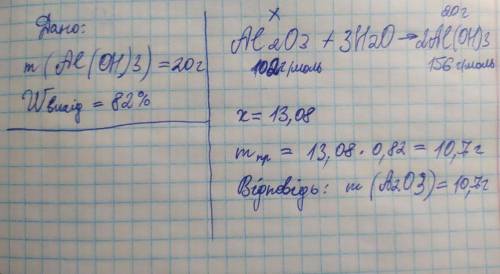 Дано:
m (Al(OH)3) = 20г
Wвихід = 82%
x
20г
Al2O3 + 3H2O → 2Al(OH)3
102г/моль
156г/моль
x = 13,08
mпр = 13,08 · 0,82 = 10,7г
Відповідь: m (Al2O3) = 10,7г